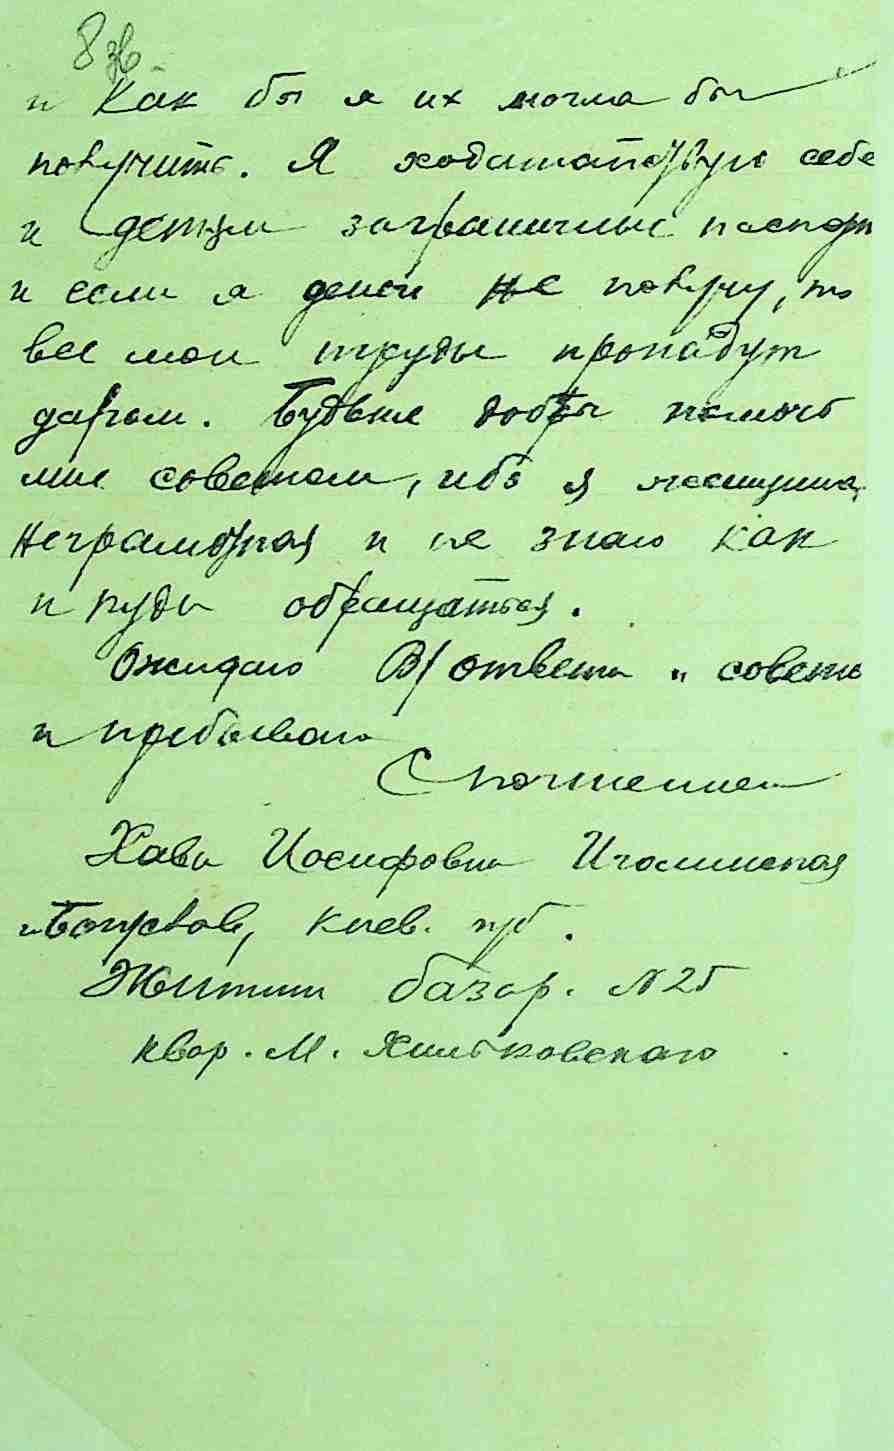 8 зв.
и Как бы я их могла бы
получить. Я ходатайствую себе
и детям заграничные паспорт
и если я денег не получу, то
все мои труды пропадут
даром. Будьте добры помочь
мне советом, ибо я женщина
неграмотная и не знаю как
и куды обращаться.
Ожидаю В/ ответа и совета
и пребываю
С почтением
Хава Иосифовна
м. Богуслав, Киев. губ.
Житний базар. N 25
квар. М. Хмельковского